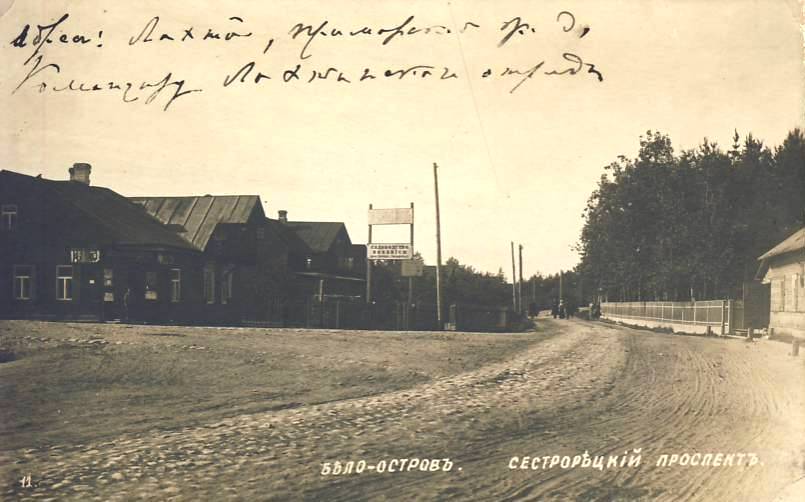 Адресъ: Лахта, приморской ж. д,
Командиру Лахтинского отряда
САДОВОДСТВО
БѢЛО-ОСТРОВЪ. СЕСТРОРѢЦКІЙ ПРОСПЕКТЪ.
11.